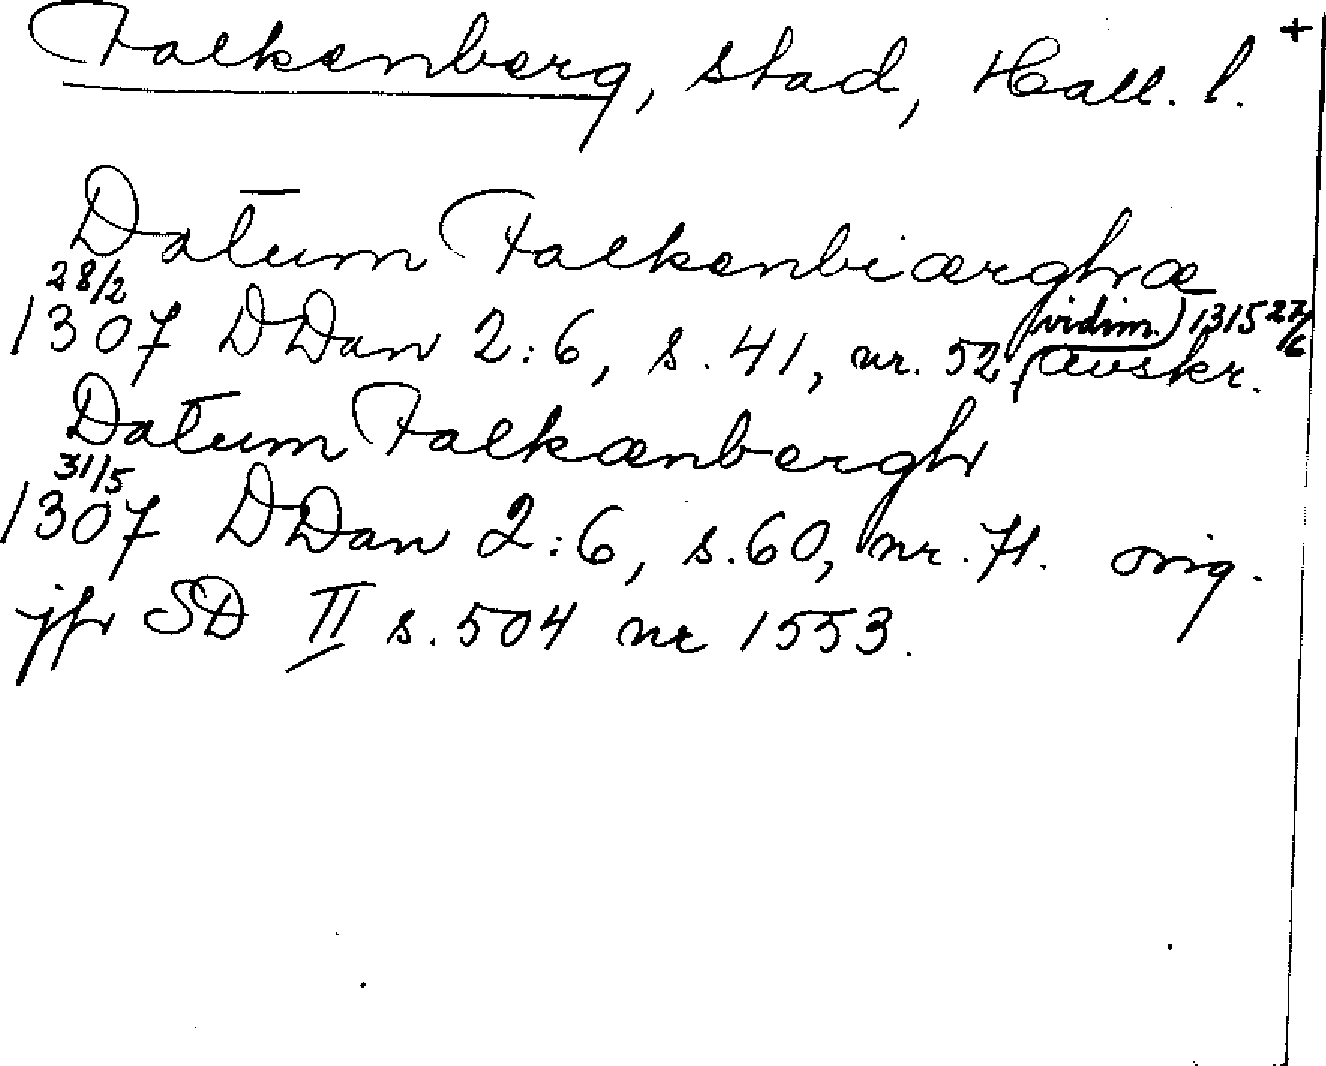 Falkenberg, stad, Hall. l. +
Datum Falkenbiærghæ
28/2
1307 DDan 2:6, s. 41, nr. 52 (vidim.) 1315 27/6
avskr.
Datum Falkænbergh
31/5
1307 DDan 2:6, s. 60, nr. 71. orig.
jfr SD II s. 504 nr 1553.